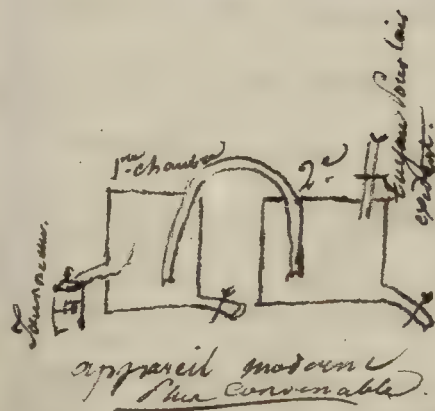 1re chambre
2e
Tuyau Pour l'air
excédent.
Fourneau.
appareil moderne
Plus convenable.